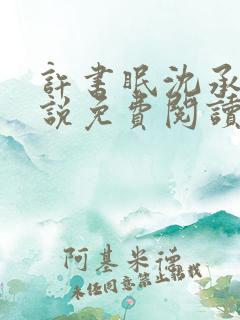 許書眠沈承
說免費閱讀
阿基米德
未经同意禁止转载